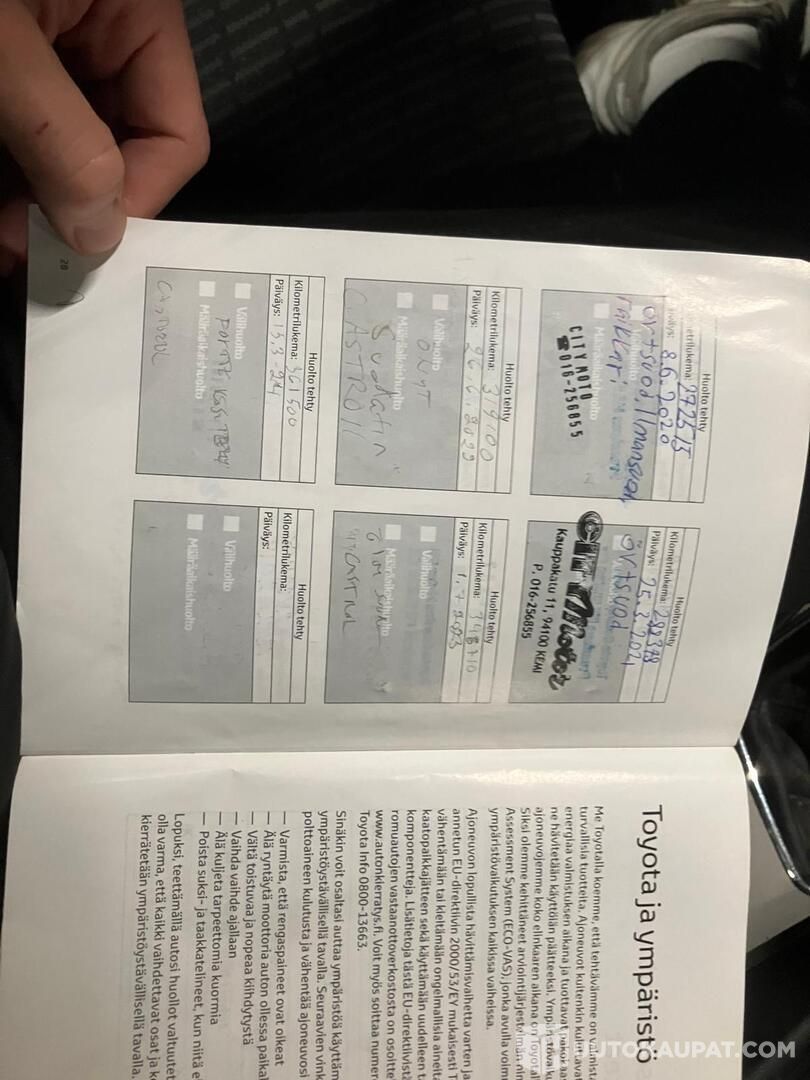 Huolto tehty
metrilukema: 272515
iväys: 8.6.2020
Raikkari
CITY MOTO
☎016-256855
Huolto tehty
Kilometrilukema: 288378
Päiväys: 25.3.2021
City Motot
Kauppakatu 11, 94100 KEMI
P. 016-256855
Huolto tehty
Kilometrilukema: 319100
Päiväys:
Välihuolto
Määräaikaishuolto
Suodatin
CASTROL
Huolto tehty
Kilometrilukema:
Päiväys: 1.7
Välihuolto
Määräaikaishuolto
CASTROL
Huolto tehty
Kilometrilukema: 361500
Päiväys: 13.3-24
Välihuolto
Määräaikaishuolto
Huolto tehty
Kilometrilukema:
Päiväys:
Välihuolto
Määräaikaishuolto
28
Toyota ja ympäristö
Me Toyotalla koemme, että tehtävämme on valmist
turvallisia tuotteita. Ajoneuvot kuitenkin kuluttavat
energiaa valmistuksen aikana ja tuottavat pakokaa
ne hävitetään käyttöiän päätteeksi. Ympäristövaiku
ajoneuvojemme koko elinkaaren aikana on Toyotal
Siksi olemme kehittäneet arviointijärjestelmän nim
Assessment System (ECO-VAS), jonka avulla voimm
ympäristövaikutukset kaikissa vaiheissa.
Ajoneuvon lopullista hävittämisvaihetta varten ja
annetun EU-direktiivin 2000/53/EY mukaisesti T
vähentämään tai kieltämään ongelmallisia aineita
kaatopaikkajätteen sekä käyttämään uudelleen t
komponentteja. Lisätietoja tästä EU-direktiivistä
romuautojen vastaanottoverkostosta on osoitte
www.autonkierratys.fi. Voit myös soittaa numero
Toyota Info 0800-13663.
Sinäkin voit osaltasi auttaa ympäristöä käyttäm
ympäristöystävällisellä tavalla. Seuraavien vink
polttoaineen kulutusta ja vähentää ajoneuvosi
— Varmista, että rengaspaineet ovat oikeat
— Älä ryntäytä moottoria auton ollessa paikal
— Vältä toistuvaa ja nopeaa kiihdytystä
— Vaihda vaihde ajallaan
— Älä kuljeta tarpeettomia kuormia
— Poista suksi- ja taakkatelineet, kun niitä e
Lopuksi, teettämällä autosi huollot valtuutet
olla varma, että kaikki vaihdettavat osat ja ke
kierrätetään ympäristöystävällisellä tavalla.
AUTOKAUPAT.COM